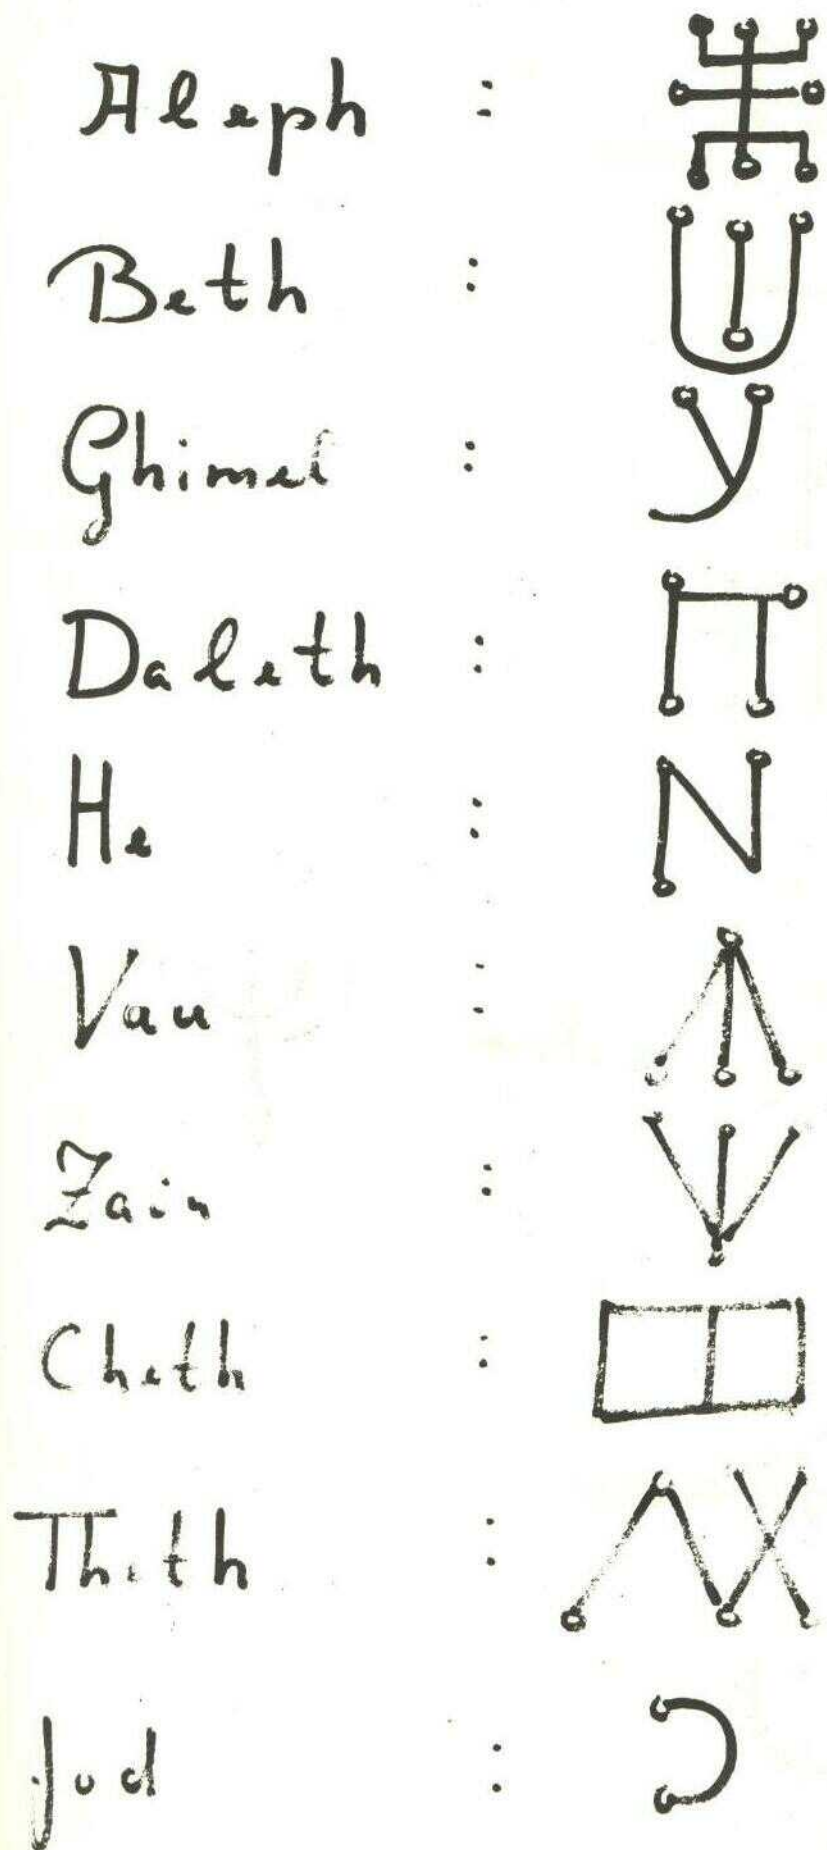 Aleph :
Beth :
Ghimel :
Daleth :
He :
Vau :
Zain :
Cheth :
Theth :
Jod :